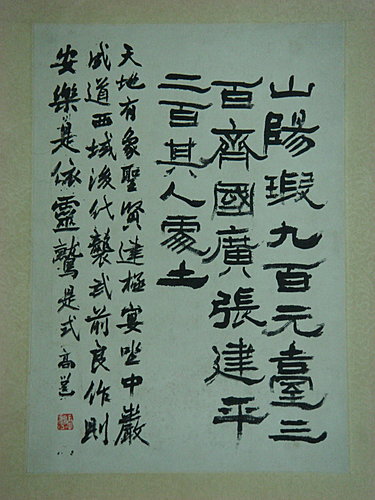 山陽瑕九百元臺三
百齊國廣張建平
二百其人處士
天地有象聖賢達極宴坐中巖
成道西域後代襲武前良作則
安樂是依靈鷲是式